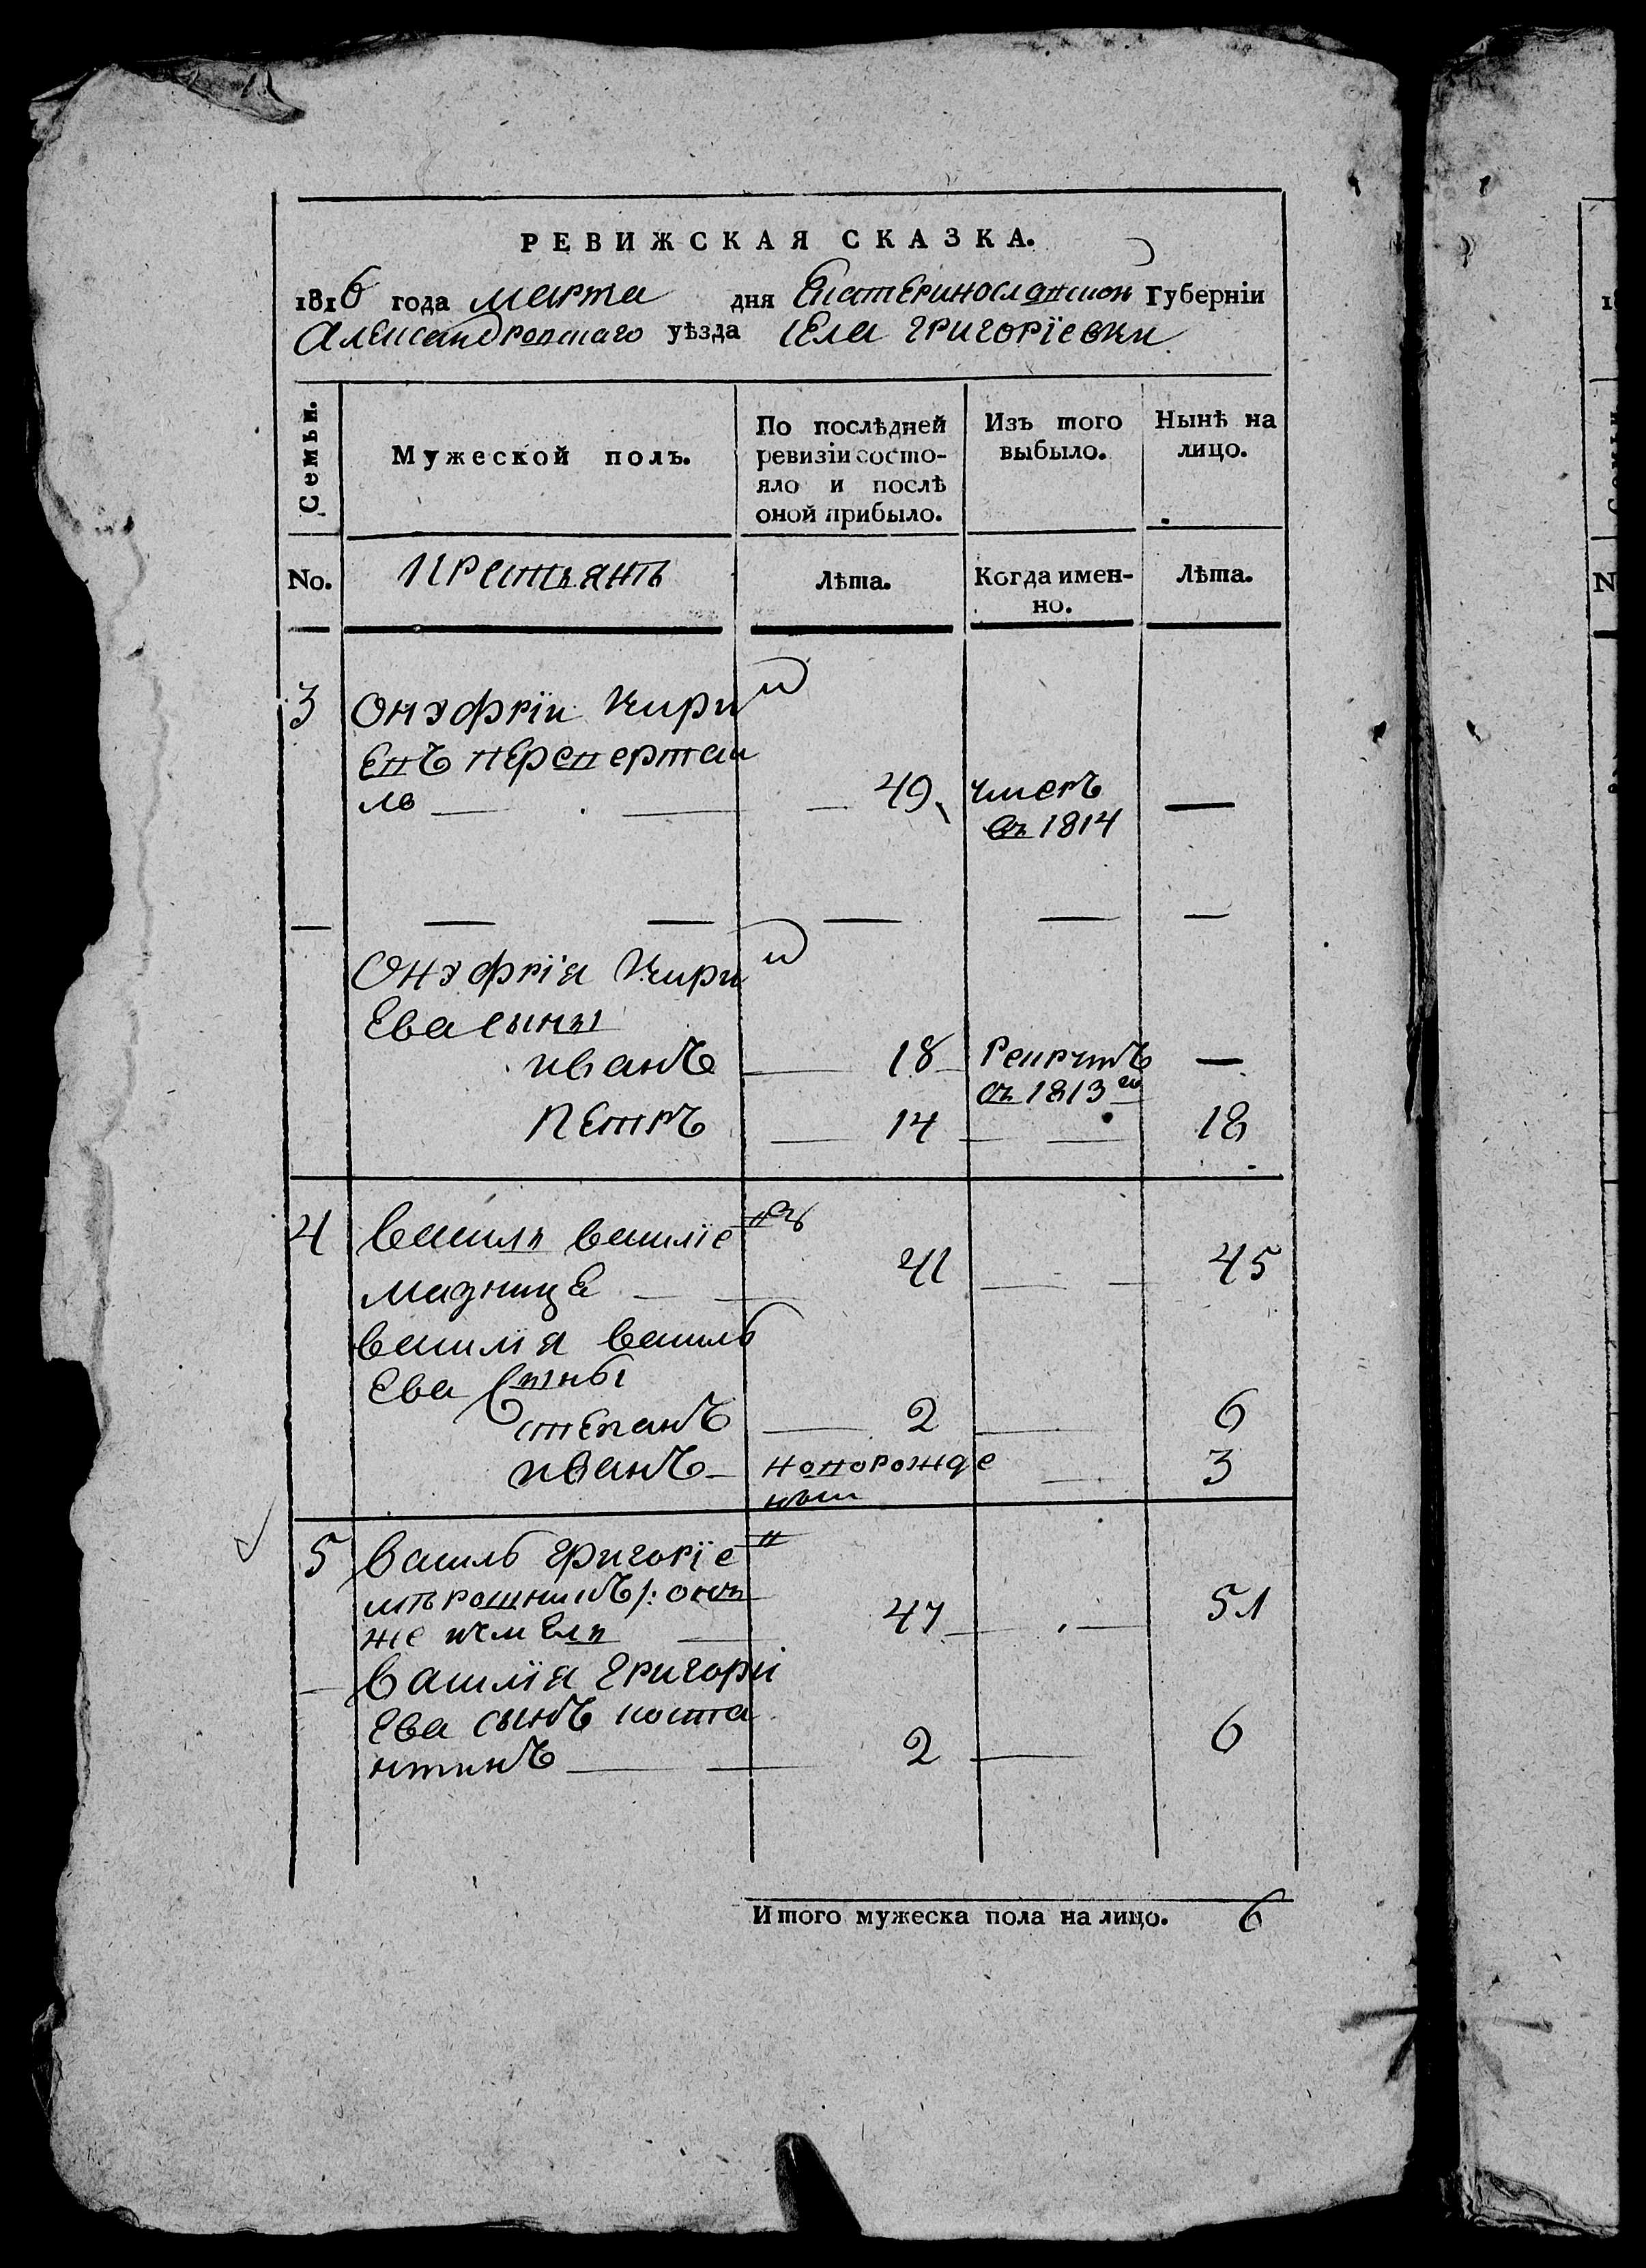 РЕВИЖСКАЯ СКАЗКА.
1816 года марта дня Екатеринославской Губерніи
Александровскаго уѣзда села григорїевки
Семьи.
Мужеской полъ.
По послѣдней ревизіи состо-
яло и послѣ
оной прибыло.
Изъ того
выбыло.
Нынѣ на
лицо.
No.
крестьянъ
Лѣта.
Когда имен-
но.
Лѣта.
3 Онуфрїи Кири
евъ
ль 49 умеръ —
въ 1814
Онуфрїя Кири
Ева сыны
иванъ 18 рекрутъ —
въ 1813го
Петръ 14 18
4 василь василїе
41 45
василїя василь
Ева сыны
степанъ 2 6
иванъ новорожде 3
ныи
5 василь григорїе
онъ
же 47 51
василїя григорї
Ева сынъ коста
нтинъ 2 6
Итого мужеска пола на лицо. 6